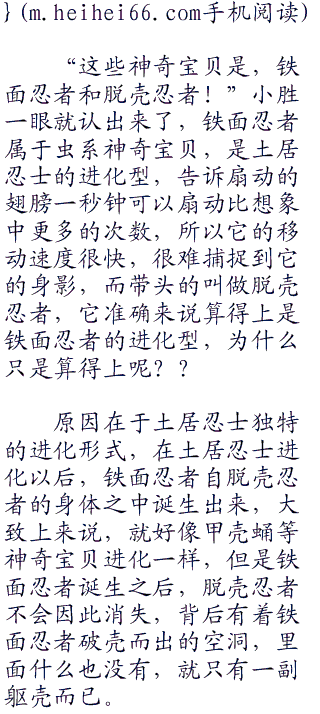 }(m.heihei66.com手机阅读)
“这些神奇宝贝是，铁
面忍者和脱壳忍者！”小胜
一眼就认出来了，铁面忍者
属于虫系神奇宝贝，是土居
忍士的进化型，告诉扇动的
翅膀一秒钟可以扇动比想象
中更多的次数，所以它的移
动速度很快，很难捕捉到它
的身影，而带头的叫做脱壳
忍者，它准确来说算得上是
铁面忍者的进化型，为什么
只是算得上呢？？
原因在于土居忍士独特
的进化形式，在土居忍士进
化以后，铁面忍者自脱壳忍
者的身体之中诞生出来，大
致上来说，就好像甲壳蛹等
神奇宝贝进化一样，但是铁
面忍者诞生之后，脱壳忍者
不会因此消失，背后有着铁
面忍者破壳而出的空洞，里
面什么也没有，就只有一副
躯壳而已。